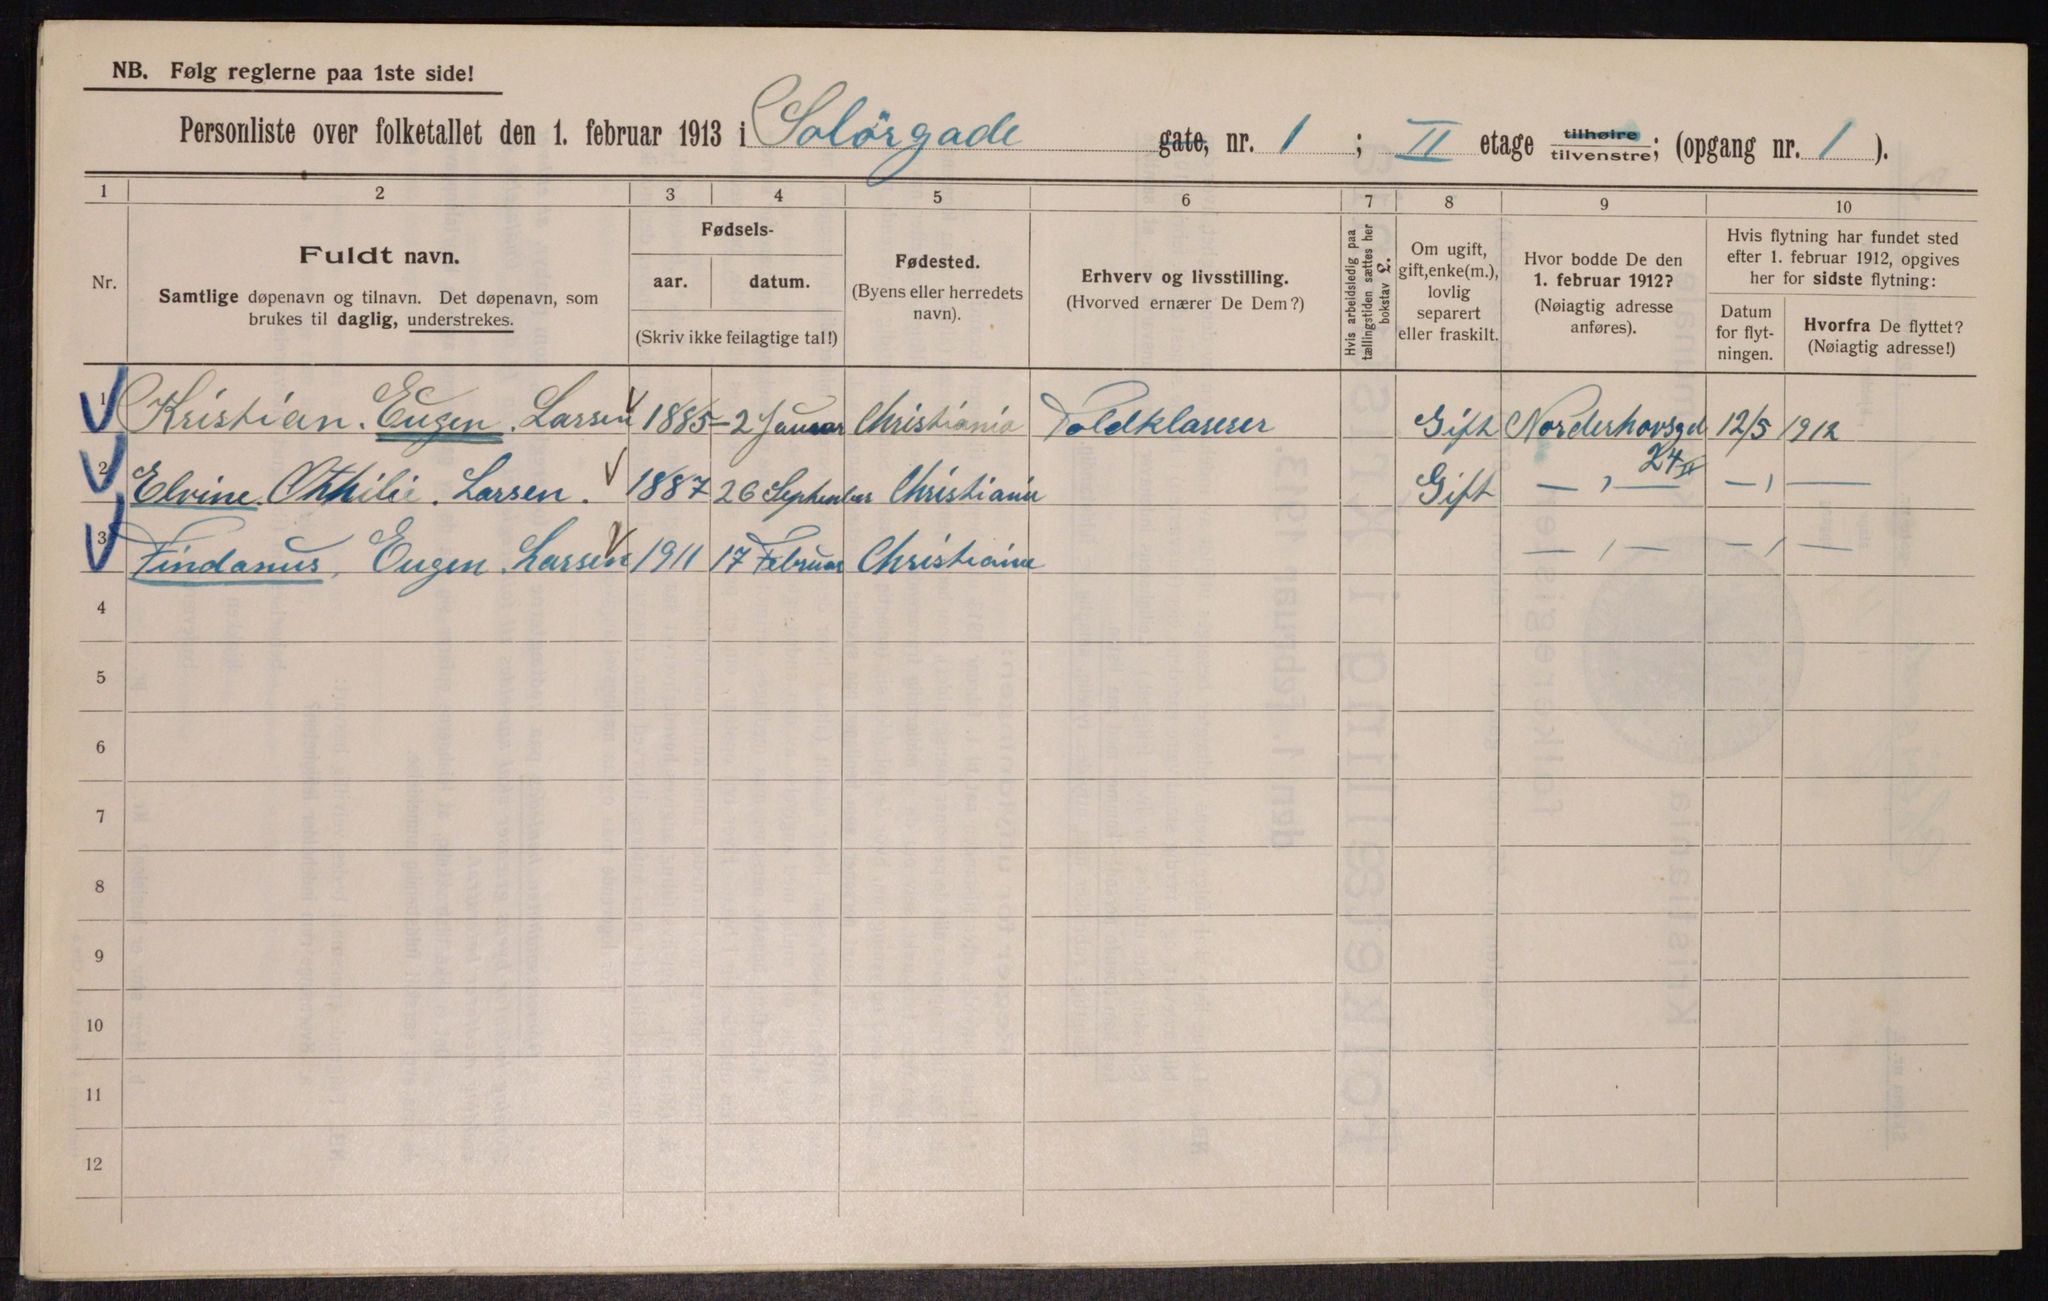 NB. Følg reglerne paa 1ste side!
Personliste over folketallet den 1. februar 1913 i Solörgade gate, nr. 1 ; II etage tilhøire/tilvenstre; (opgang nr. 1 ).
1 2 3 4 5 6 7 8 9 10
Nr.
Fuldt navn.
Samtlige døpenavn og tilnavn. Det døpenavn, som
brukes til daglig, understrekes.
Fødsels-
aar. datum.
(Skriv ikke feilagtige tal!)
Fødested.
(Byens eller herredets
navn).
Erhverv og livsstilling.
(Hvorved ernærer De Dem?)
Hvis arbeidsledig paa
tællingstiden sættes her
bokstav L.
Om ugift,
gift, enke(m.),
lovlig
separert
eller fraskilt.
Hvor bodde De den
1. februar 1912?
(Nøiagtig adresse
anføres).
Hvis flytning har fundet sted
efter 1. februar 1912, opgives
her for sidste flytning:
Datum
for flyt-
ningen.
Hvorfra De flyttet?
(Nøiagtig adresse!)
1 Kristian. Eugen. Larsen 1885 – 2 Januar Christiania Gift Norderhovsgd 12/5 1912
24 II
2 Elvine. Othilie. Larsen. 1887 26 September Christiania Gift — , — — , —
3 Findanus, Eugen. Larsen 1911 17 Februar Christiania — , — — , —
4
5
6
7
8
9
10
11
12